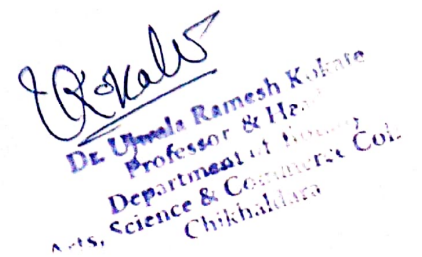 RKokate
Dr. Ujwala Ramesh Kokate
Professor & Head
Department of Botany
Arts, Science & Commerce Col.
Chikhaldara